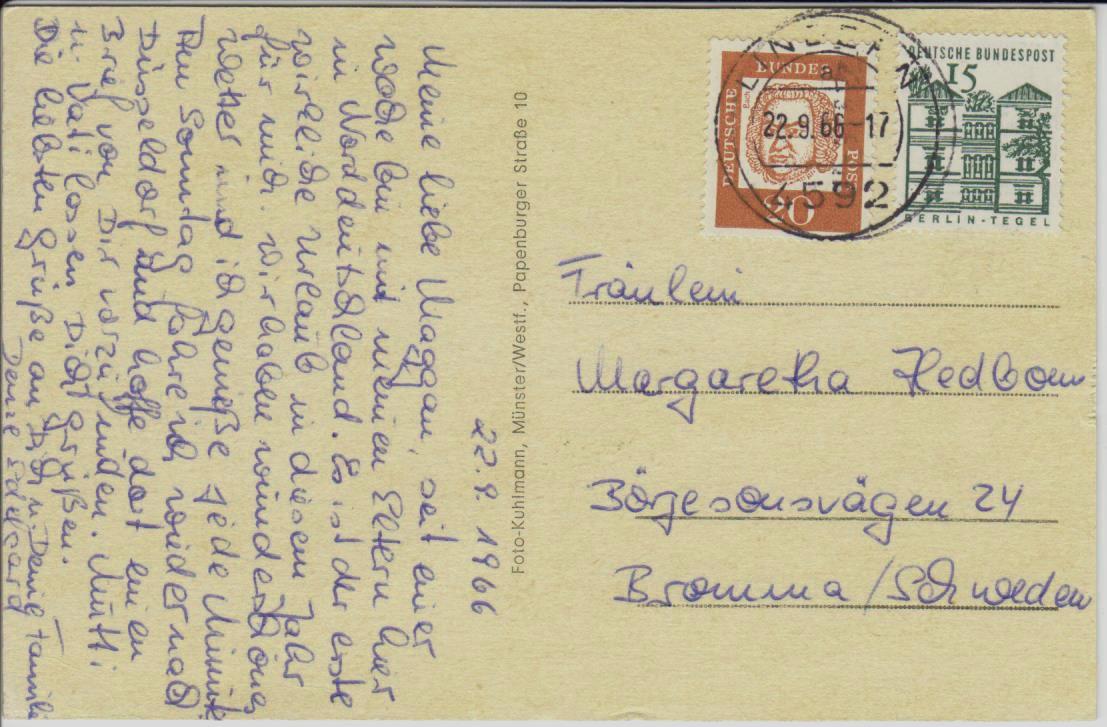 22.9.1966
Meine liebe Maggan, seit einer
Woche bin mit meinen Eltern hier
in Norddeutschland. Es ist der erste
wirkliche Urlaub in diesem Jahr
für mich. Wir haben wunderschönes
Wetter und ich genieße jede Minute.
Am Sonntag fahre ich wieder nach
Düsseldorf und hoffe dort einen
Brief von Dir vorzufinden. Mutti
u. Vati lassen Dich grüßen.
Die liebsten Grüße an Dich u. Deine Familie
Deine Edelgard
Foto-Kuhlmann, Münster/Westf., Papenburger Straße 10
DEUTSCHE BUNDESPOST
Bach
20
DEUTSCHE BUNDESPOST
15
BERLIN-TEGEL
LINDERN
a
22.9.66-17
4592
Fräulein
Margaretha Hedbom
Börjesonsvägen 24
Bromma/Schweden